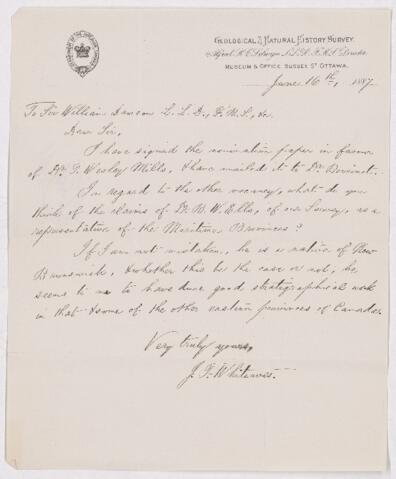 GEOLOGICAL & NATURAL HISTORY SURVEY.
Alfred R. C. Selwyn, L.L.D. F.R.S. Director.
MUSEUM & OFFICE SUSSEX ST OTTAWA.
June 16th, 1887
To Sir William Dawson L.L.D., F.R.S., &c.
Dear Sir,
I have signed the nomination paper in favour
of Dr. T. Wesley Mills, & have mailed it to Dr. Bourinot.
In regard to the other vacancy, what do you
think of the claims of Dr. R. W. Ells, of our Survey, as a
representative of the Maritime Provinces?
If I am not mistaken, he is a native of New
Brunswick, & whether this be the case or not, he
seems to me to have done good stratigraphical work
in that & some of the other eastern provinces of Canada.
Very truly yours,
J. F. Whiteaves.